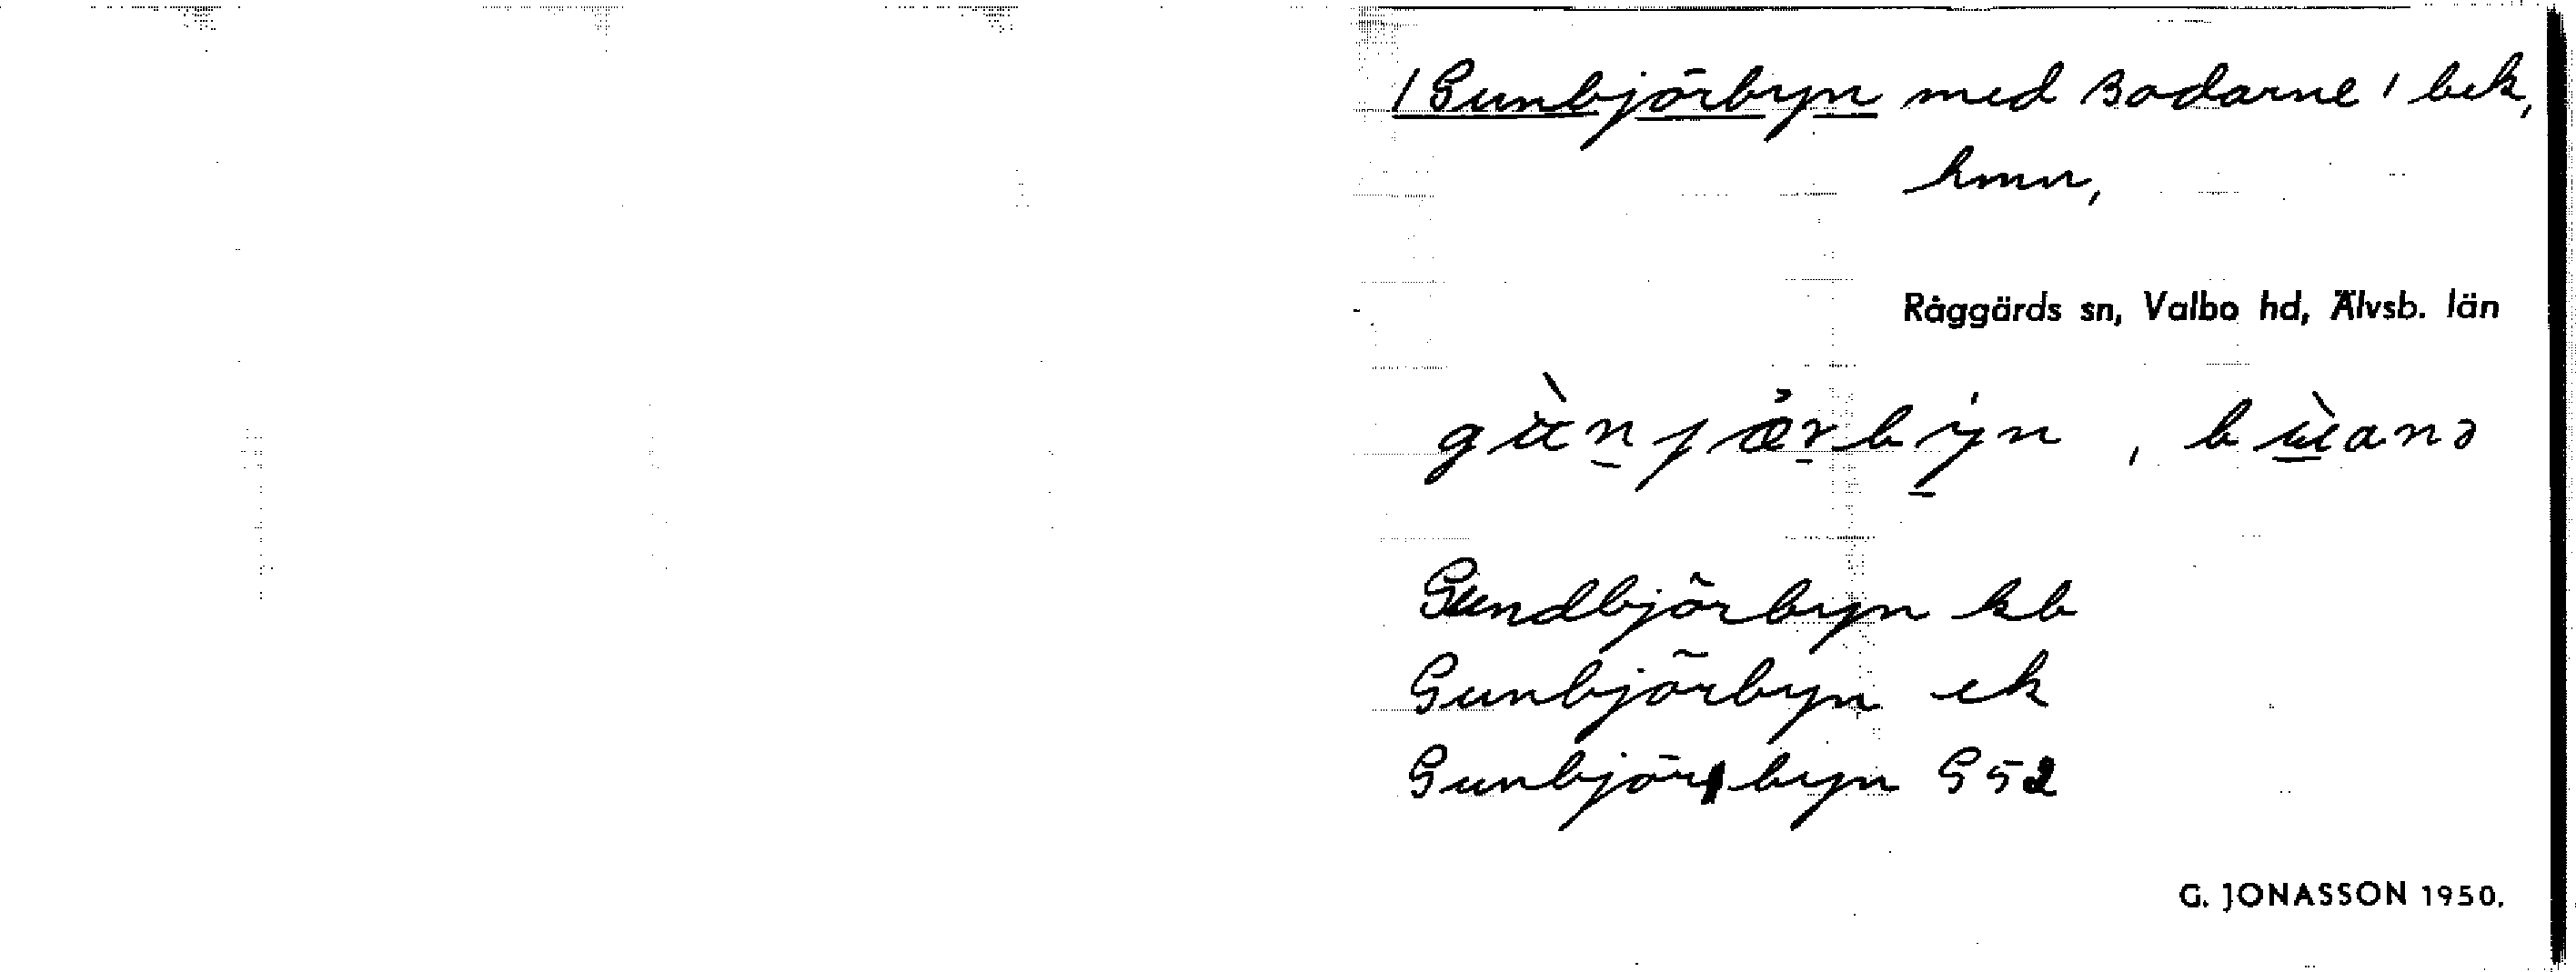 1 Gunbjörbyn med Bodarne 1 bek,
hmn,
Råggärds sn, Valbo hd, Älvsb. län
Gundbjörbyn kb
Gunbjörbyn ek
Gunbjörbyn G52
G. JONASSON 1950.